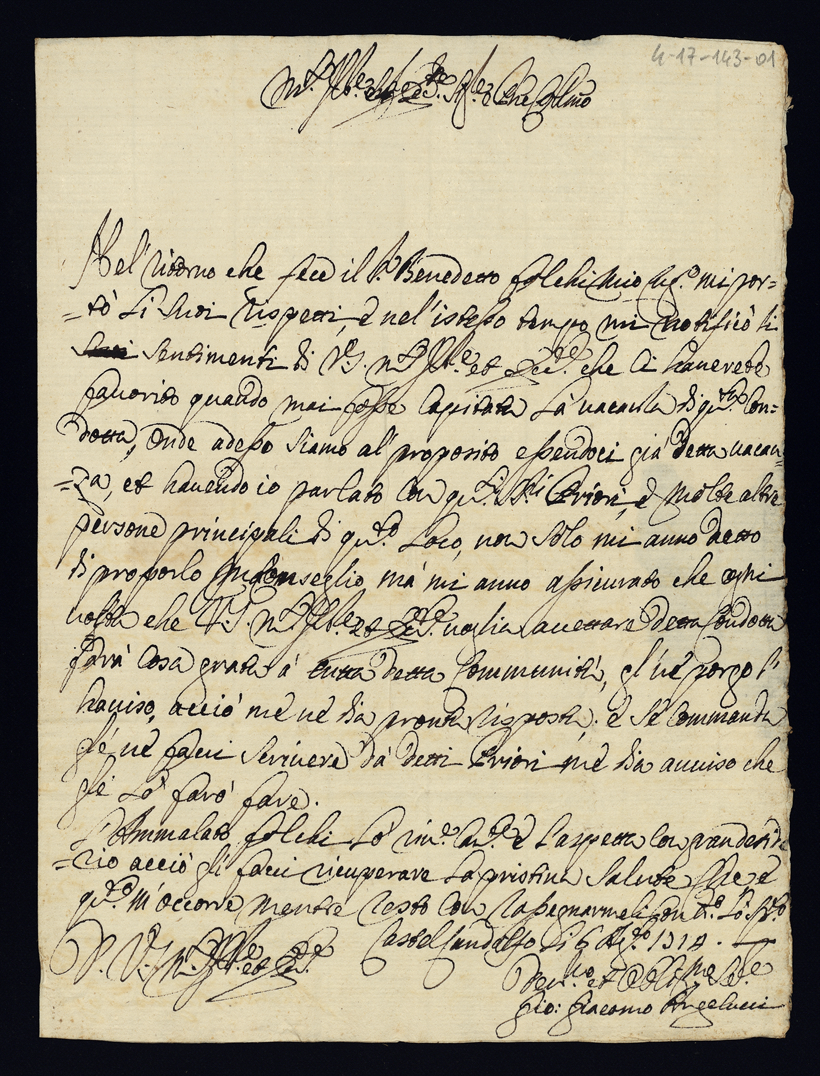 4-17-143-01
Nel' ritorno che fece il S.r Benedetto folchi mio mi por=
=tò li suoi rispetti, e nel'istesso tempo mi notificò li
sentimenti di V.S. m.to Ill.re et Ecc.te che ci haverebe
favorito quando mai fosse capitata la vacanza di q.ta con=
dotta, onde adesso siamo al' proposito essendoci già detta vacan=
=za, et havendo io parlato con q.ti SS.ri Priori, e molte altre
persone principali di q.to loco, non solo mi anno detto
di proporlo in Conseglio mà mi anno assicurato che ogni
volta che V.S. m.to Ill.re et Ecc.te voglia accettare detta Condotta
farà cosa grata à tutta detta Communità, gl'ne porgo l'
haviso, acciò me ne dia pronta risposta, e se commanda
gle ne facci scrivere da detti Priori me ne dia avviso che
gle lò farò fare.
L'Ammalato folchi lo e l'aspetta con gran deside
=rio acciò gli facci ricuperare la pristina salute che è
q.to m'occorre mentre resto con rassegnarmeli
D. V.S. m.to Ill.re et Ecc.te Castel Gandolfo li 6 Ag.to 1714.
Dev.mo et Obl.mo Ser.re
Gio: Giacomo Angelucci